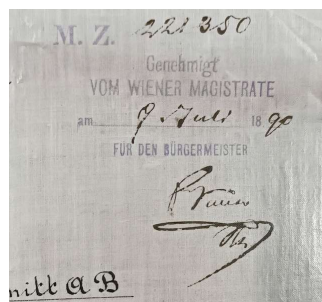 M. Z. 221350
Genehmigt
VOM WIENER MAGISTRATE
am 9 Juli 1890
FÜR DEN BÜRGERMEISTER
nitt A B